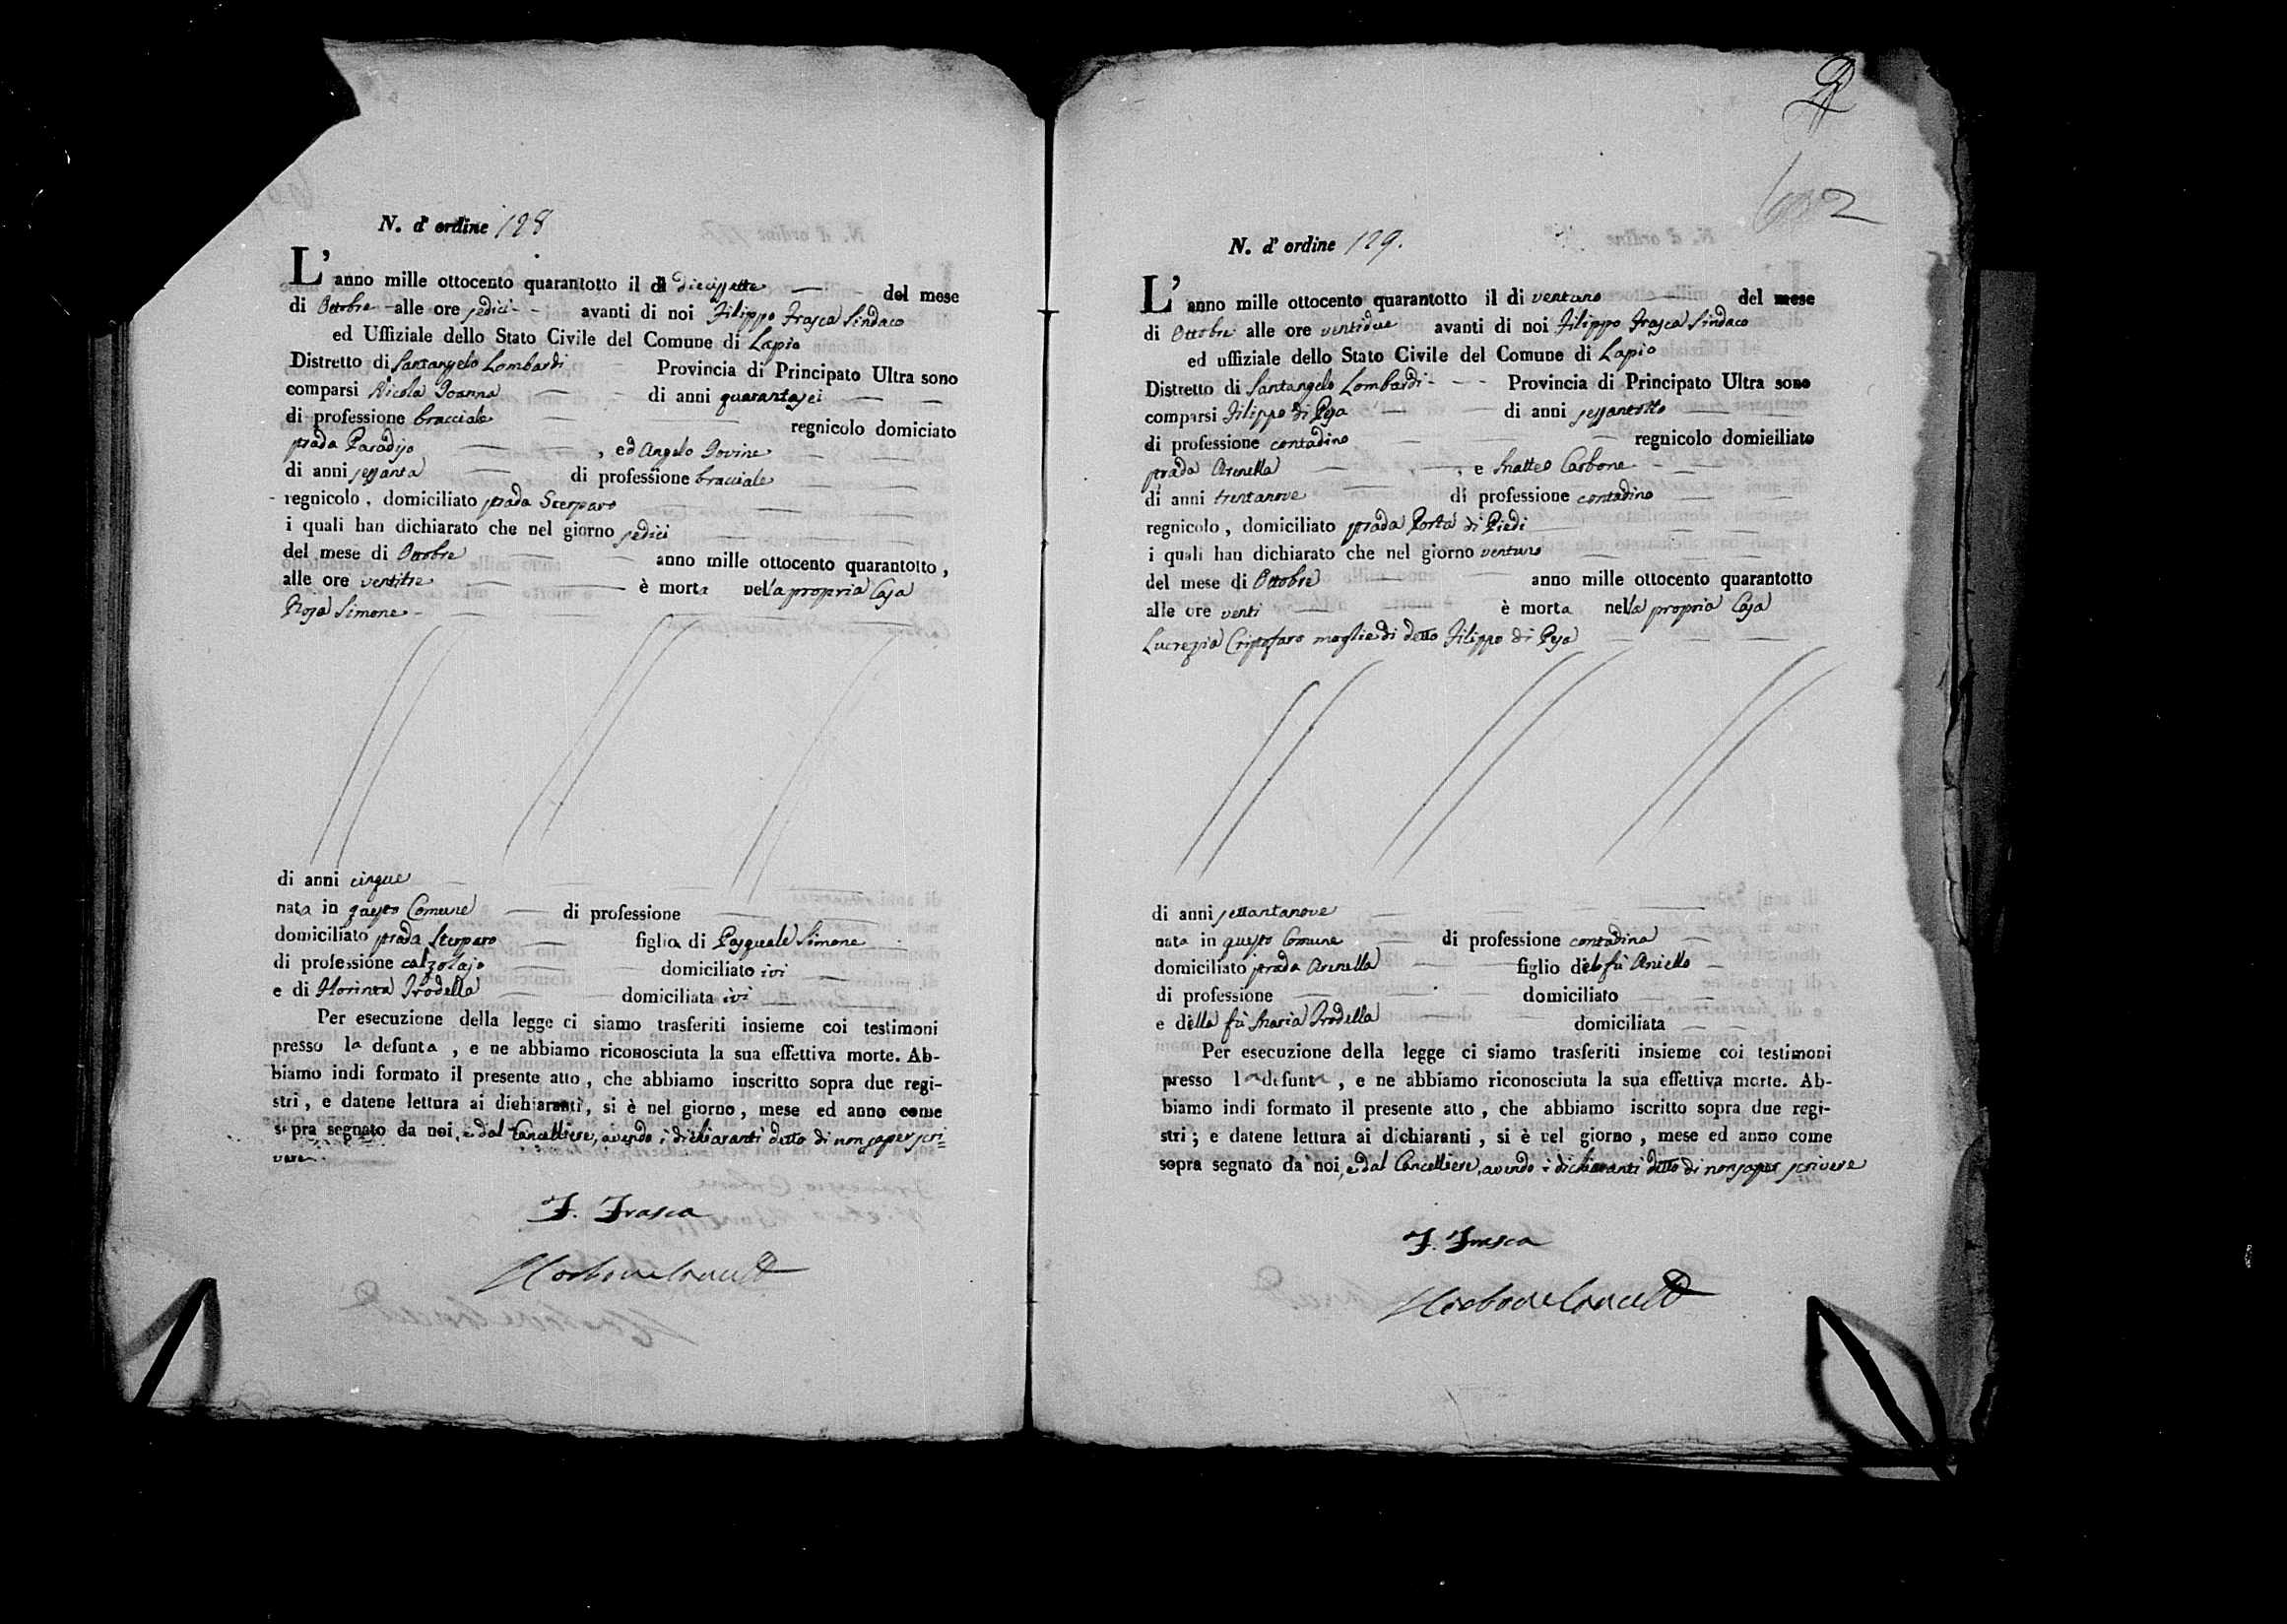 N. d'ordine 128
L'anno mille ottocento quarantotto il dì diecissette del mese
di Ottobre alle ore sedici avanti di noi Filippo Frasca Sindaco
ed Uffiziale dello Stato Civile del Comune di Lapio
Distretto di Santangelo Lombardi Provincia di Principato Ultra sono
comparsi Nicola Ioanna di anni quarantasei
di professione bracciale regnicolo domiciato
strada Paradiso , ed Angelo Iovine
di anni sessanta di professione bracciale
regnicolo, domiciliato strada Sterparo
i quali han dichiarato che nel giorno sedici
del mese di Ottobre anno mille ottocento quarantotto,
alle ore ventitre è morta nella propria Casa
Rosa Simone
di anni cinque
nata in questo Comune di professione
domiciliato strada Sterparo figlia di Pasquale Simone
di professione calzolajo domiciliato ivi
e di Florinta Trodella domiciliata ivi
Per esecuzione della legge ci siamo trasferiti insieme coi testimoni
presso la defunta, e ne abbiamo riconosciuta la sua effettiva morte. Ab-
biamo indi formato il presente atto, che abbiamo inscritto sopra due regi-
stri, e datene lettura ai dichiaranti, si è nel giorno, mese ed anno come
sopra segnato da noi, e dal Cancelliere, avendo i dichiaranti detto di non saper scri=
vere.
F. Frasca
602
N. d'ordine 129.
L'anno mille ottocento quarantotto il di ventuno del mese
di Ottobre alle ore ventidue avanti di noi Filippo Frasca Sindaco
ed uffiziale dello Stato Civile del Comune di Lapio
Distretto di Santangelo Lombardi Provincia di Principato Ultra sono
comparsi Filippo di Pesa di anni sessantotto
di professione contadino regnicolo domieiliato
strada Arenella , e Matteo Carbone
di anni trentanove di professione contadino
regnicolo, domiciliato strada Porta di Piedi
i quali han dichiarato che nel giorno ventuno
del mese di Ottobre anno mille ottocento quarantotto
alle ore venti è morta nella propria Casa
Lucrezia Cristofaro moglie di detto Filippo di Pesa
di anni settantanove
nata in questo Comune di professione contadina
domiciliato strada Arenella figlio del fù Aniello
di professione domiciliato
e della fù Maria Trodella domiciliata
Per esecuzione della legge ci siamo trasferiti insieme coi testimoni
presso la defunta, e ne abbiamo riconosciuta la sua effettiva morte. Ab-
biamo indi formato il presente atto, che abbiamo iscritto sopra due regi-
stri; e datene lettura ai dichiaranti, si è nel giorno, mese ed anno come
sopra segnato da noi, e dal Cancelliere, avendo i dichiaranti detto di non saper scrivere
F. Frasca